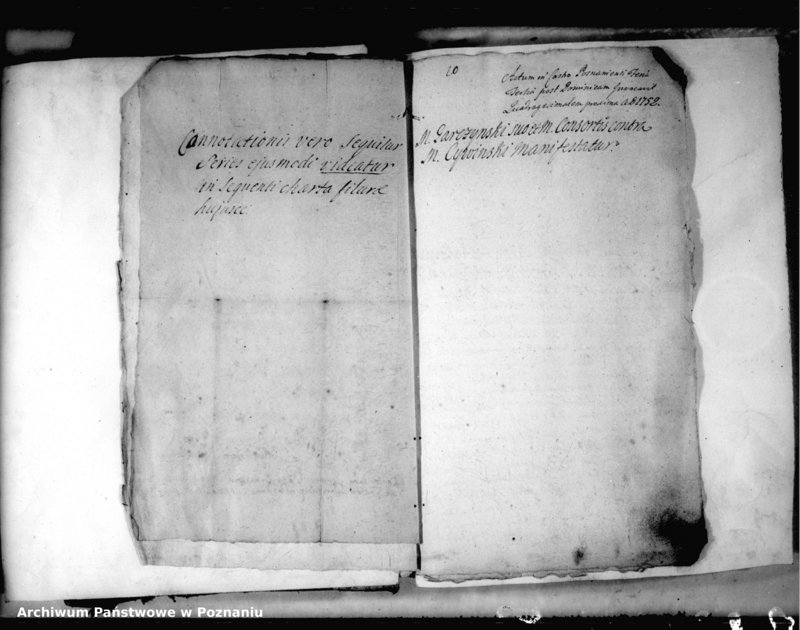 Connotationis vero Sequitur
Series ejusmodi videatur
in Sequenti charta filura
hujusce
10
Actum in Castro Posnaniensi Feria
Tertia post Dominicam Invocavit
Quadragesimalem proxima A.D. 1752.
M. Garczynski suo et M. Consortis contra
M. Cywinski Manifestatur.
Archiwum Państwowe w Poznaniu